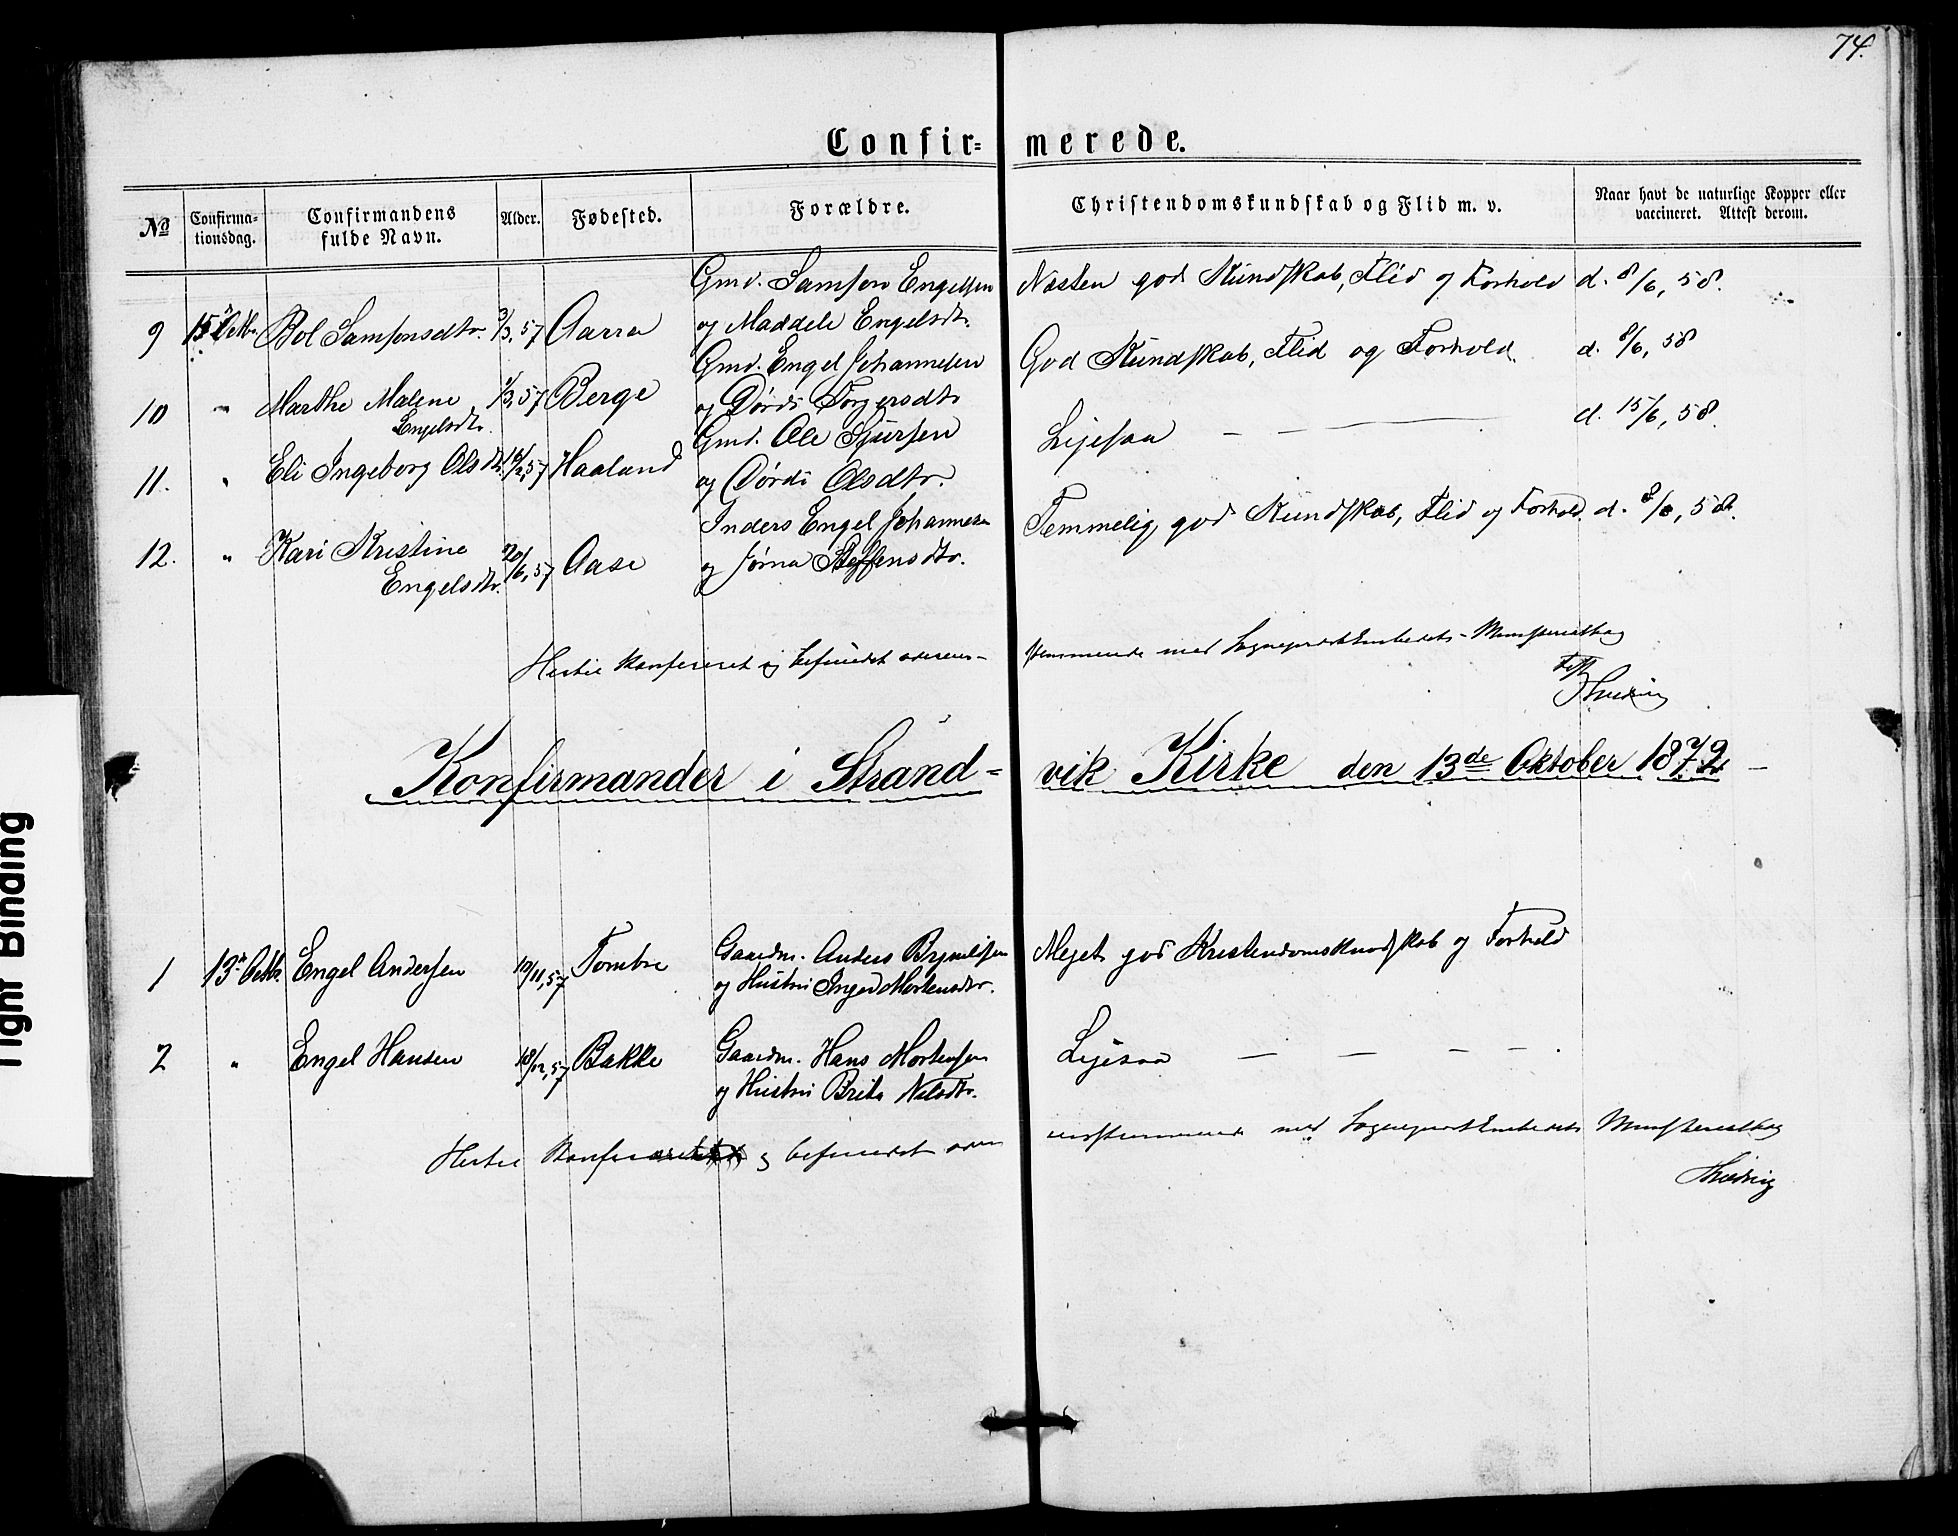 74.
Confir- merede.
No
Confirma-
tionsdag.
Confirmandens
fulde Navn.
Alder.
Fødested.
Forældre.
Christendomskundskab og Flid m. v.
Naar havt de naturlige Kopper eller
vaccineret. Attest derom.
9 Bol Samsonsdtr. 3/3, 57 Aarra Gmd. Samson Engelsen Næsten god Kundskab, Flid og Forhold d. 8/6, 58.
og Maddele Engelsdtr.
10 " Marthe Malene 1/3, 57 Berge Gmd. Engel Johannesen God Kundskab, Flid og Forhold. d. 8/6, 58
Engelsdtr. og Dørdi Torgersdtr
11. " Eli Ingeborg Olsdtr. 57 Haaland Gmd. Ole Sjursen Ligesaa — — — d. 15/6, 58.
og Dørdi Olsdtr.
12. " Kari Kristine 20/6, 57 Aase Inders Engel Johannesen Temmelig god Kundskab, Flid og Forhold. d. 8/6, 58.
Engelsdtr. og Jørna Steffensdtr.
Hertil konfereret og befundet overens- stemmende med Sogneprestembedets Ministerialbog
Konfirmander i Strand- vik Kirke den 13de Oktober 1872
1 13de Oktbr. Engel Andersen 10/11, 57 Tombre Gaardm. Anders Brynildsen Meget god Kristendomskundskab og Forhold
og Hustru Inger Mortensdtr.
2 " Engel Hansen 18/12, 57 Bakke Gaardm. Hans Mortensen Ligesaa — — — —
og Hustru Brita Nilsdtr.
Hertil og befundet med Sogneprestembedets Ministerialbog
Tight Binding